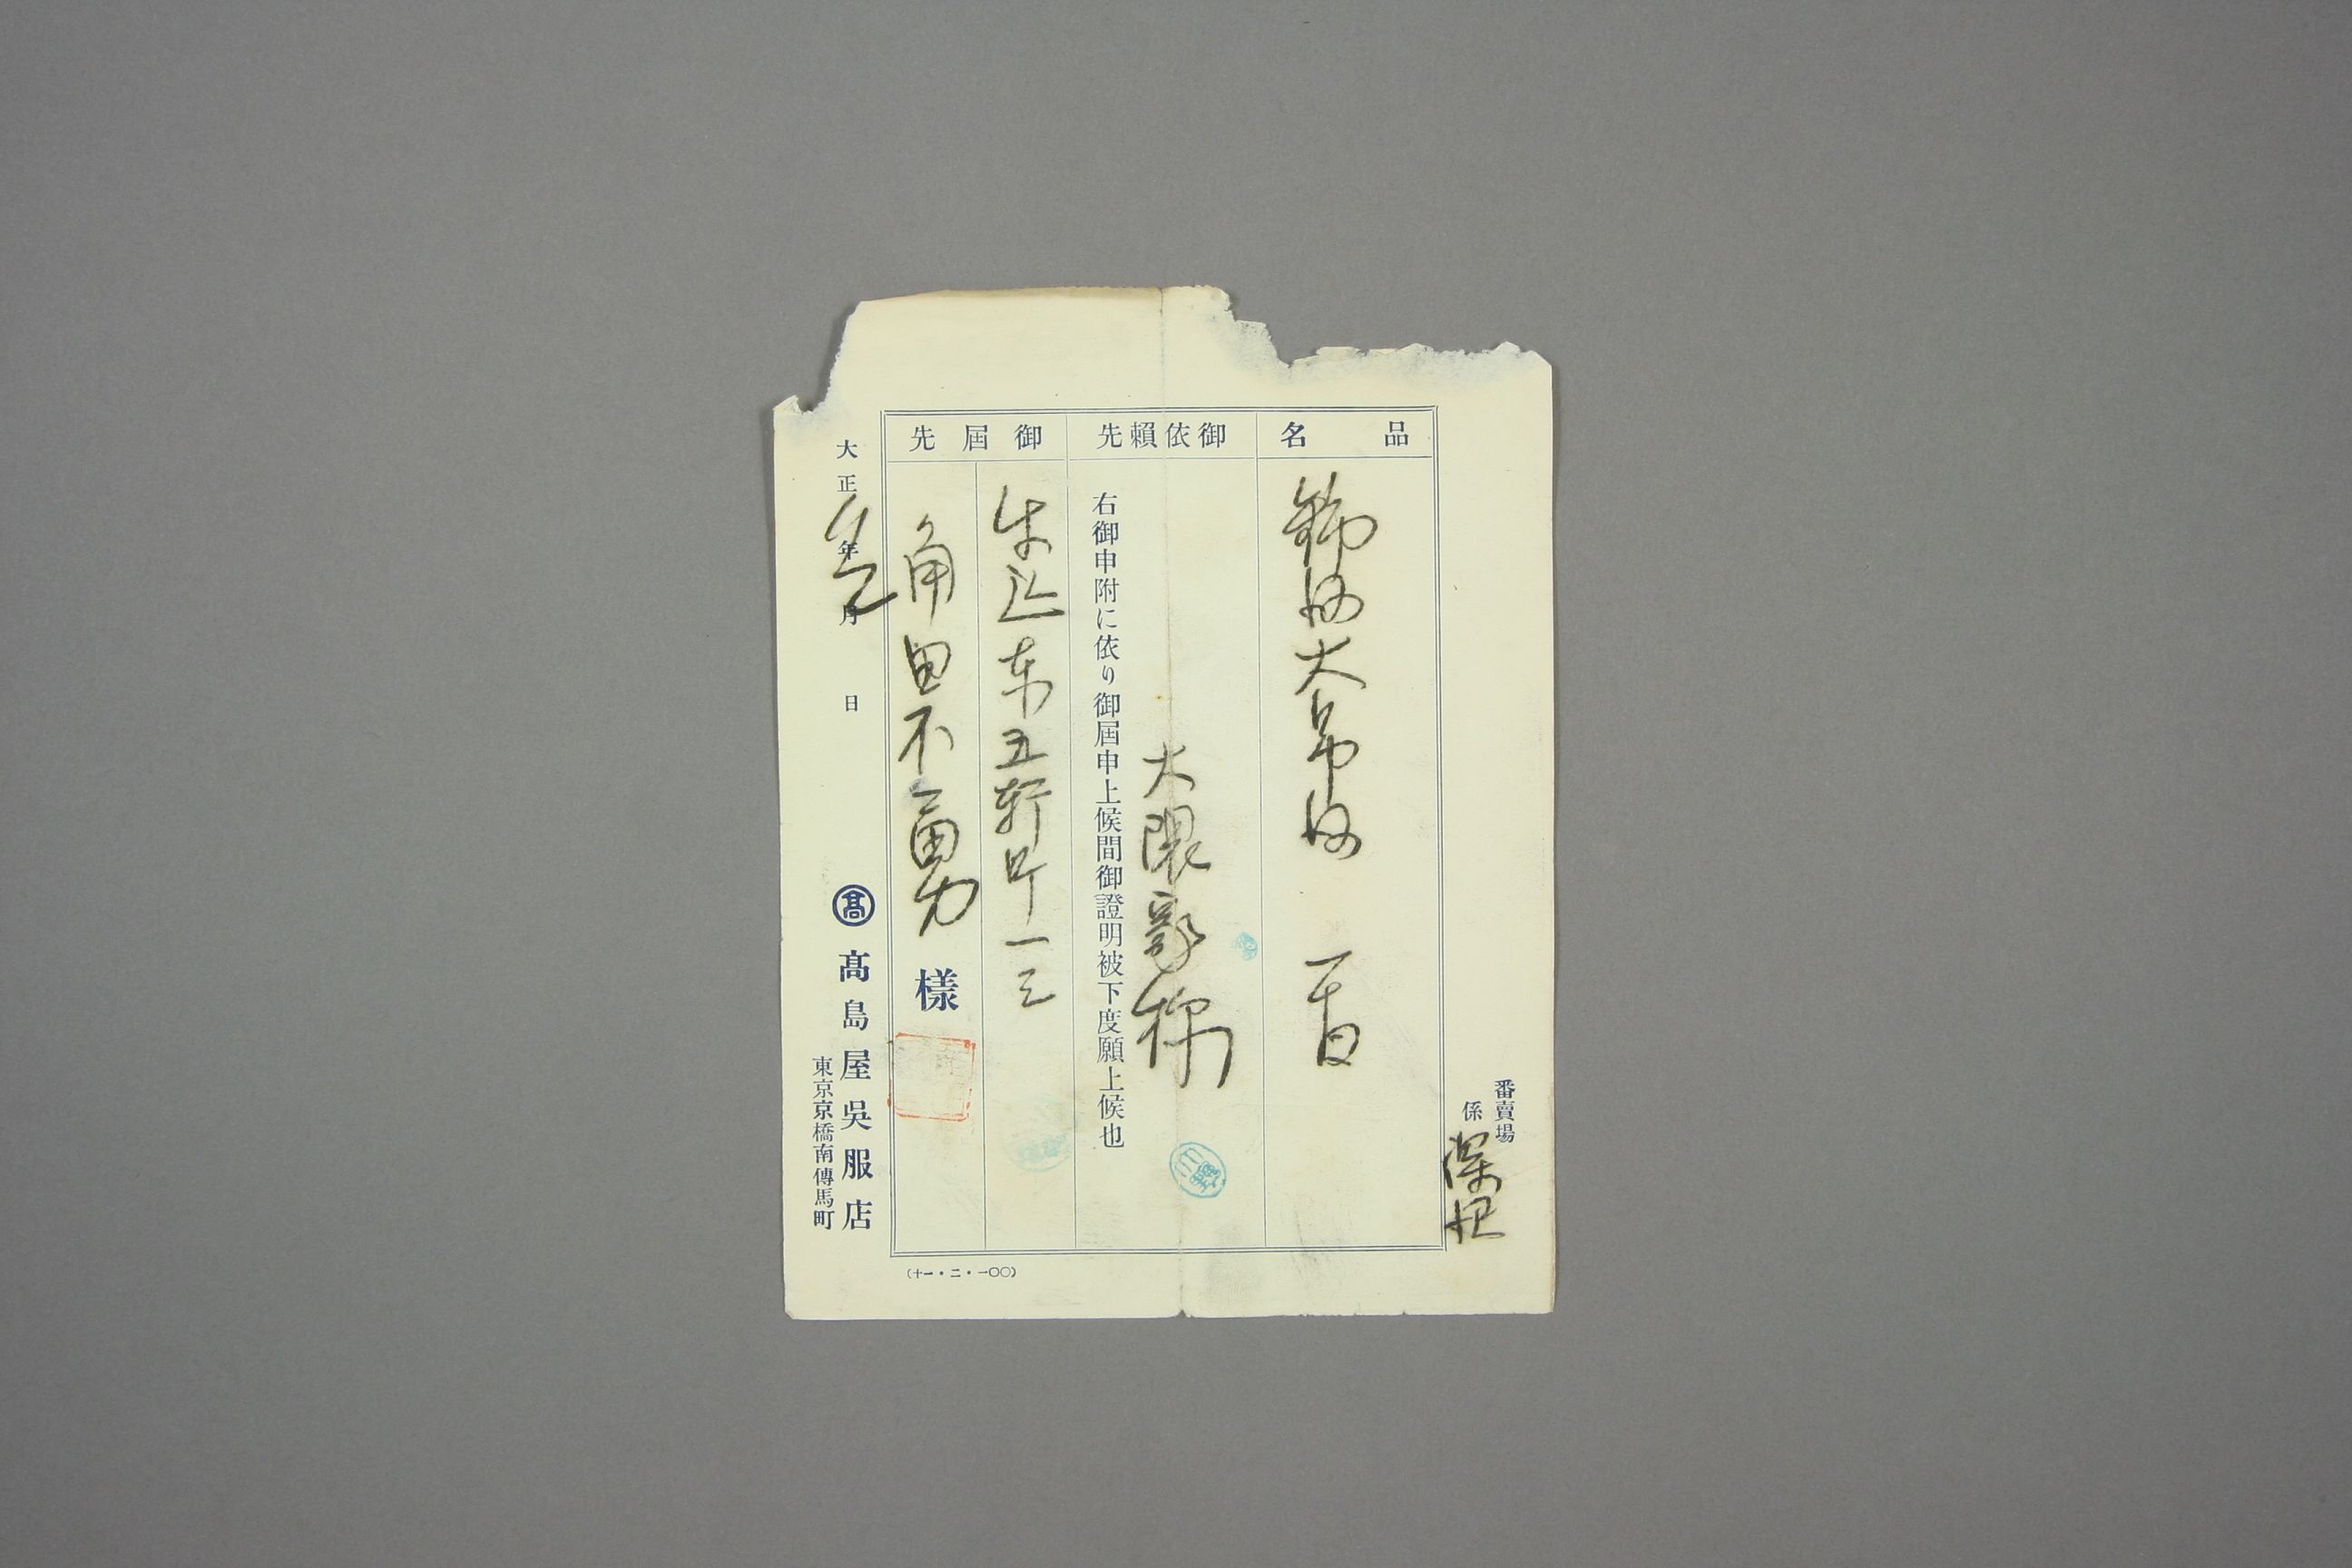 番賣場
係 深堀
品名
大帛
一百
御依賴先
大隈家
右御申附に依り御屆申上候間御證明被下度願上候也
御屆先
牛込東五軒町一三
角田不二勇 樣
大正 年 月 日
髙
髙島屋吳服店
東京京橋南傳馬町
(十一・二・一〇〇)